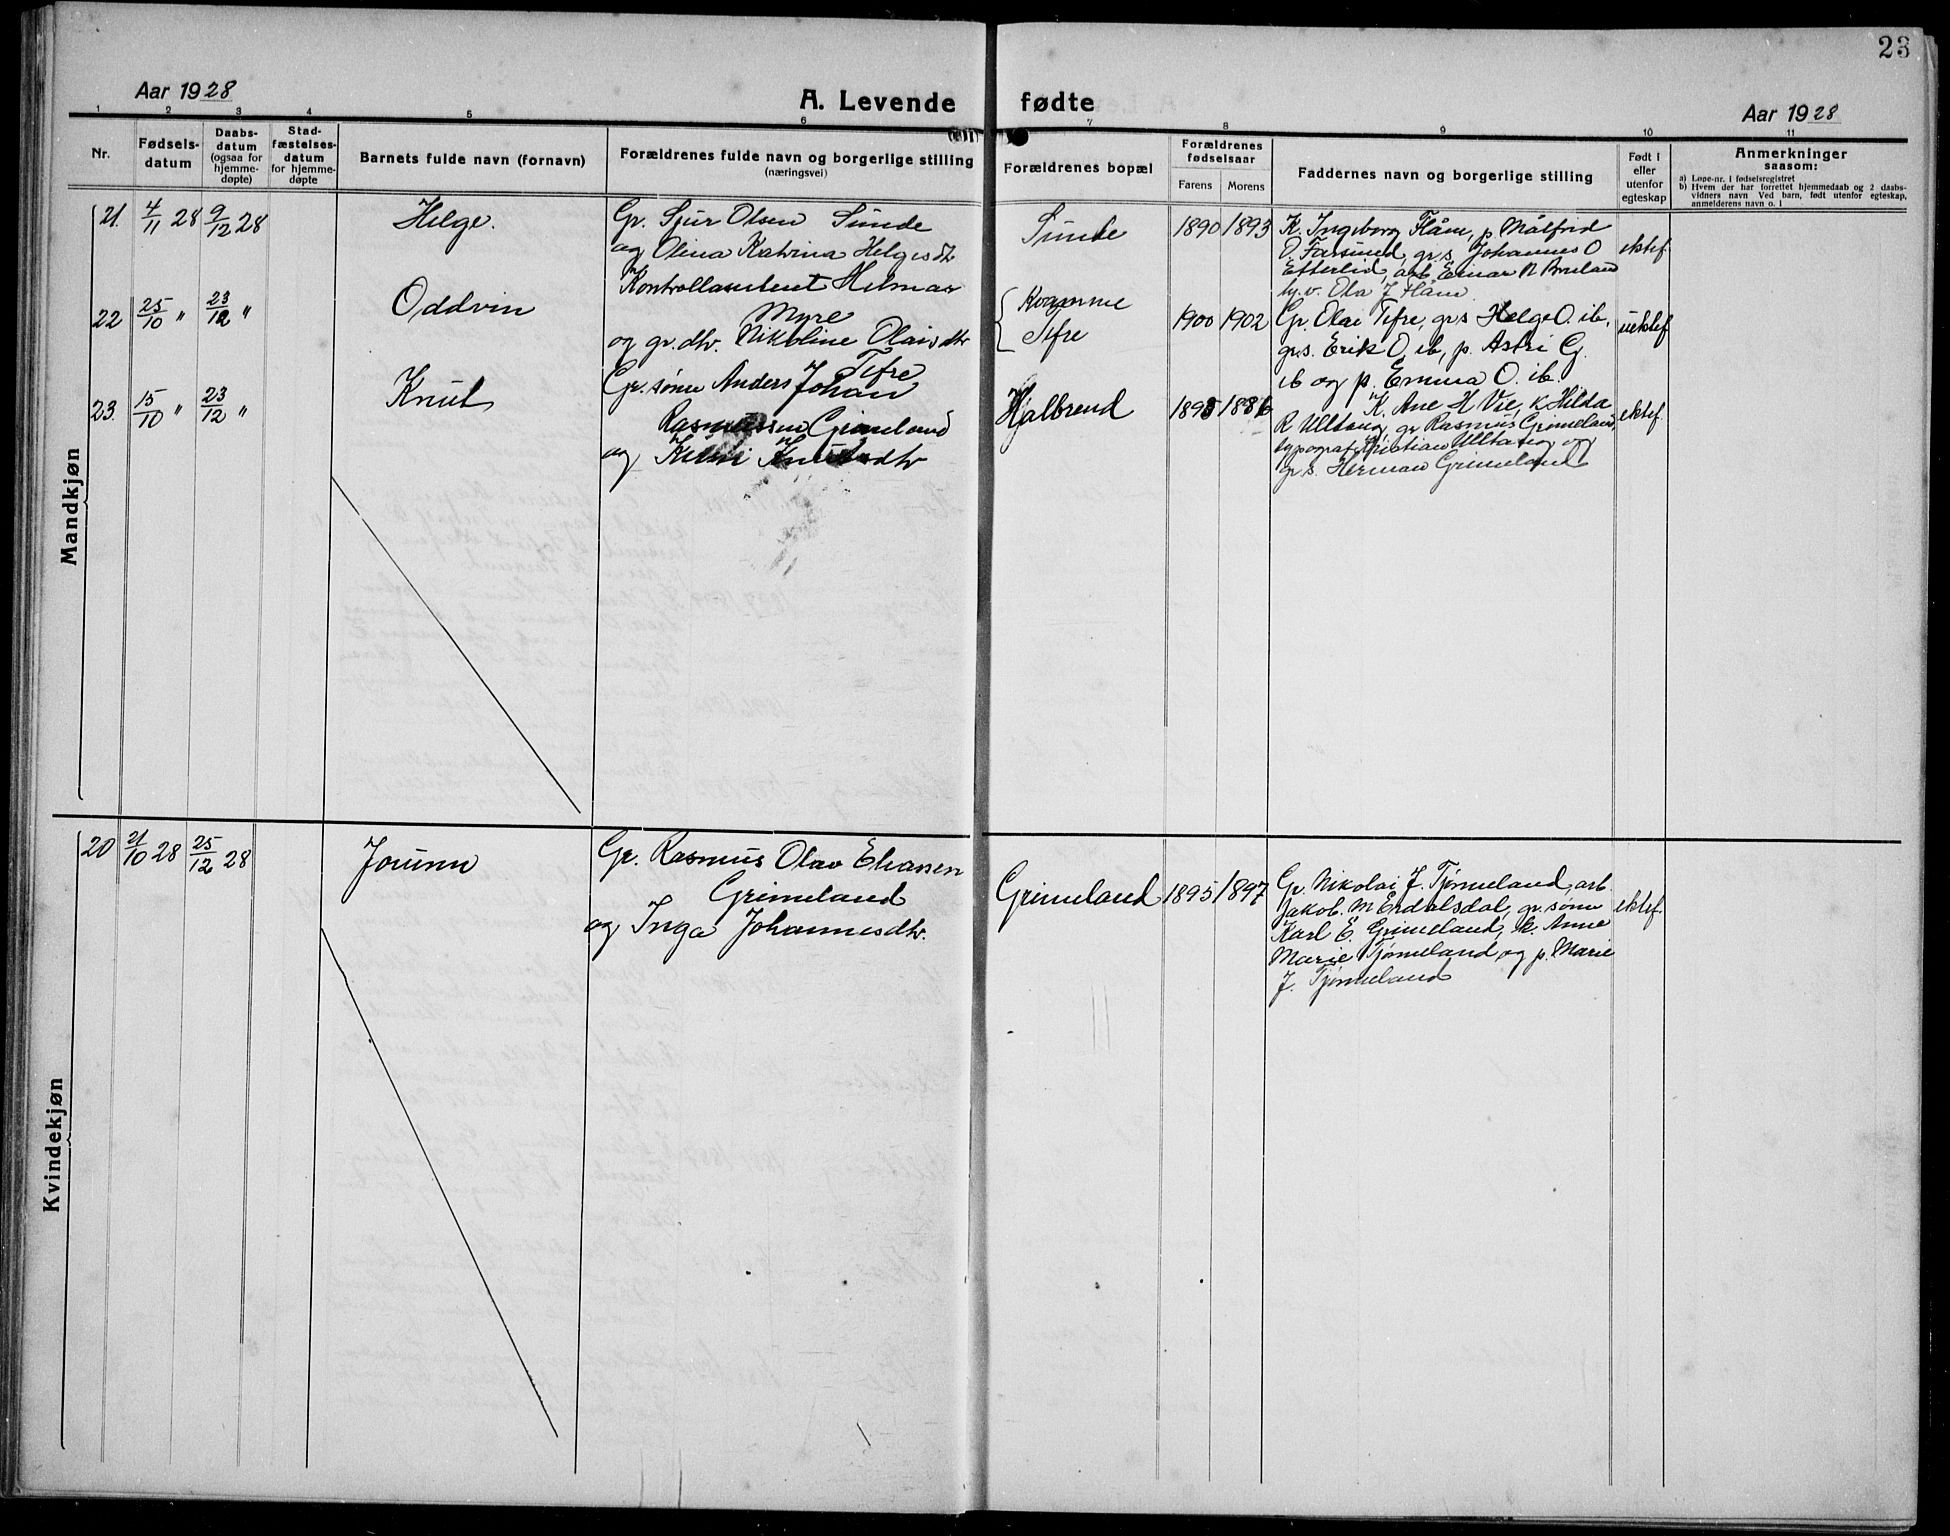 23
Aar 1928
A. Levende fødte
Aar 1928
1 2 3 4 5 6 7 8 9 10 11
Nr.
Fødsels-
datum
Daabs-
datum
(ogsaa for
hjemme-
døpte)
Stad-
fæstelses-
datum
for hjemme-
døpte
Barnets fulde navn (fornavn)
Forældrenes fulde navn og borgerlige stilling
(næringsvei)
Forældrenes bopæl
Forældrenes
fødselsaar
Farens Morens
Faddernes navn og borgerlige stilling
Født i
eller
utenfor
egteskap
Anmerkninger
saasom:
a) Løpe-nr. i fødselsregistret
b) Hvem der har forrettet hjemmedaab og 2 daabs-
vidners navn Ved barn, født utenfor egteskap,
anmelderens navn o. l
Mandkjøn
21. 4/11 28 9/12 28
Helge.
Gr. Sjur Olsen Sunde
og Olina Katrina Helgesdtr
Sunde
1890 1893
K. Ingeborg Flåm, p Målfrid
O. Farsund, gr.s. Johannes O
Efterlid, arb. Einar R
ty.v. Ola J Flåm
ektef.
22 25/10 " 23/12 "
Oddvin
Kontrollassistent Hilmar
Myre
og gr.dtr. Nikoline Olaisdtr
Tefre
Kvamme
Tefre
1900 1902
Gr. Olai Tefre, gr.s Helge O. ib,
gr.s. Erik O. ib, p. Astri G.
ib og p. Emma O. ib.
uektef
23. 15/10 " 23/12 "
Knut
Gr. søn Anders Johan
Rasmussen Grimeland
og Knutsdtr
Hjalbrend
1895 1886
K. Ane H Vie, k Hilda
R Ulltang, gr Rasmus Grimeland,
typograf Kristian Ulltang og
gr.s. Herman Grimeland
ektef.
Kvindekjøn
20 21/10 28 25/12 28
Jorunn
Gr. Rasmus Olav Eliassen
Grimeland
og Inga Johannesdtr.
Grimeland
1895 1897
Gr. Nikolai J. Tjønneland, arb.
Jakob. M Erdalsdal, gr. søn
Karl E. Grimeland, k. Anne
Marie Tjønneland og p. Marie
J. Tjønneland
ektef.